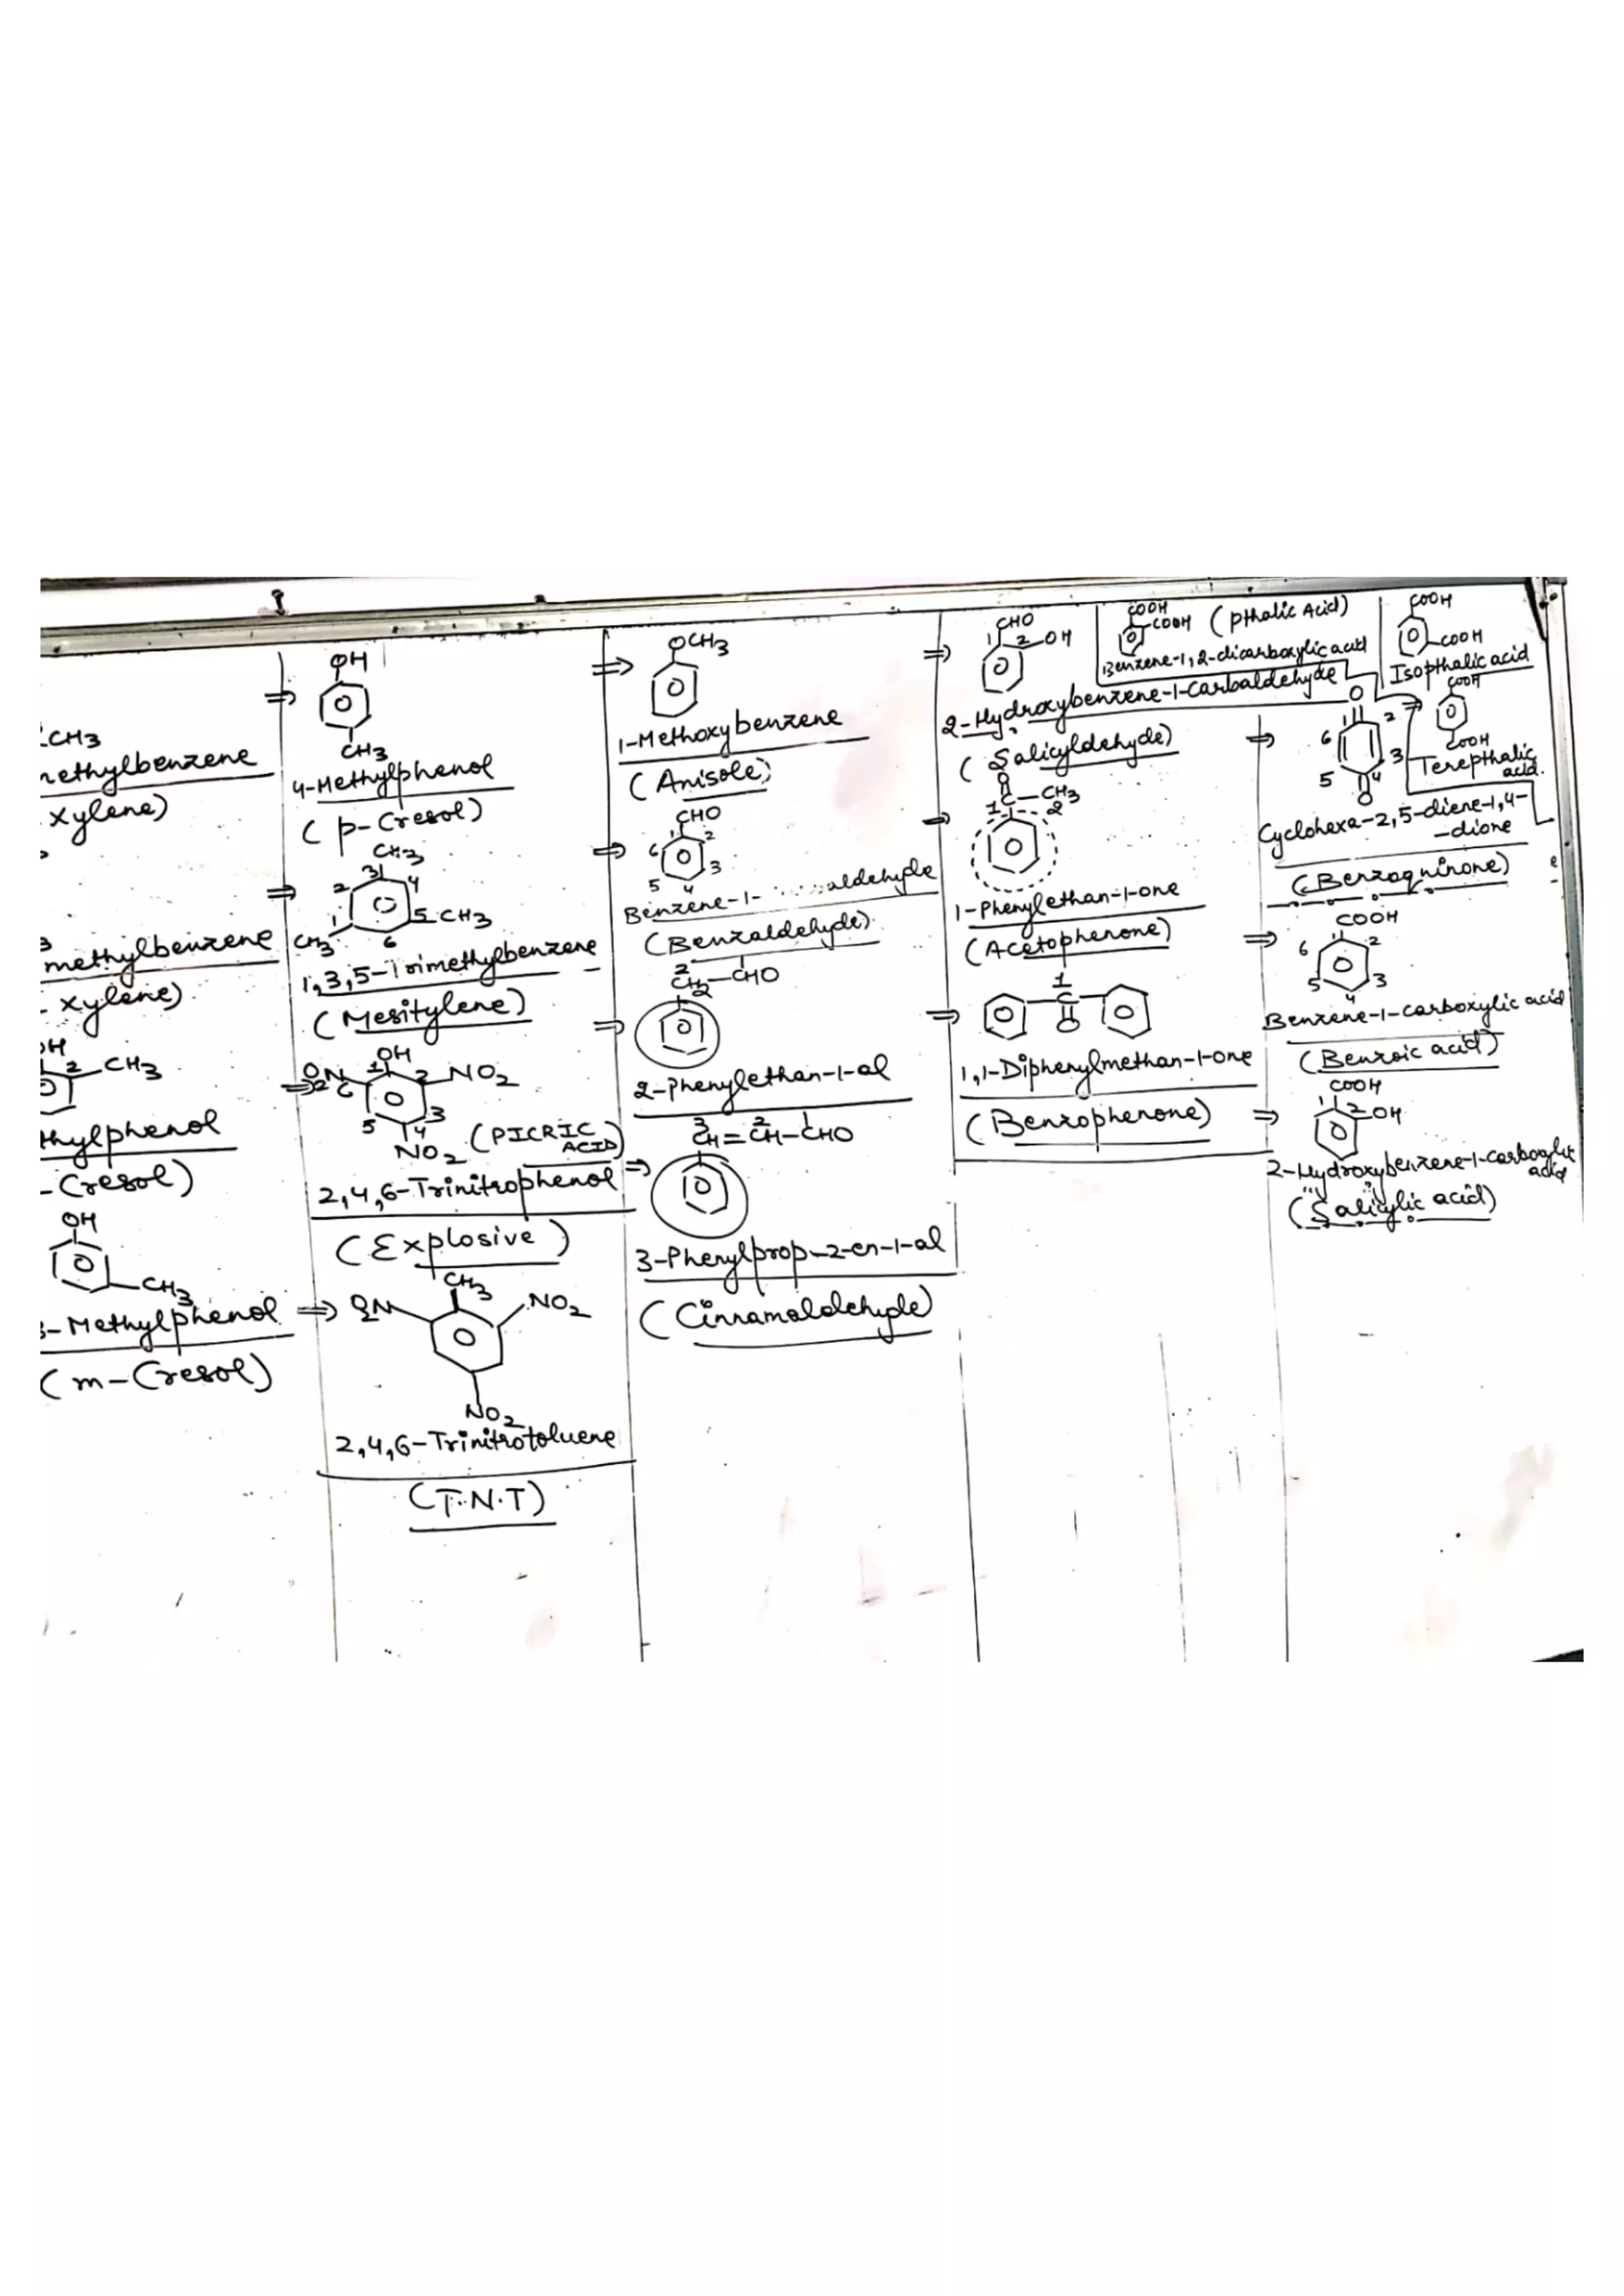 CH3
methylbenzene
xylene)
3
methylbenzene
- xylene)
OH
2 CH3
thylphenol
- Cresol)
OH
CH3
3-Methylphenol
(m-Cresol)
⇒ OH
CH3
4-Methylphenol
(p-Cresol)
⇒ CH3
2 3 4
1 5 CH3
CH3 6
1,3,5-Trimethylbenzene
(Mesitylene)
⇒ OH
O2N 6 1 2 NO2
5 3
4
NO2 (PICRIC ACID)
2,4,6-Trinitrophenol
(Explosive)
⇒ CH3
O2N NO2
NO2
2,4,6-Trinitrotoluene
(T.N.T)
⇒ OCH3
1-Methoxybenzene
(Anisole)
⇒ CHO
6 1 2
5 4 3
Benzene-1- aldehyde
(Benzaldehyde)
2 1
CH2-CHO
⇒
2-Phenylethan-1-al
3 2 1
CH=CH-CHO
⇒
3-Phenylprop-2-en-1-al
(Cinnamaldehyde)
⇒ CHO
1 2 OH
2-Hydroxybenzene-1-Carbaldehyde
(Salicyldehyde)
O
1 C-CH3
2
⇒
1-Phenylethan-1-one
(Acetophenone)
1
⇒ C
O
1,1-Diphenylmethan-1-one
(Benzophenone)
COOH
COOH (pthalic Acid)
Benzene-1,2-dicarboxylic acid
COOH
COOH
Isopthalic acid
⇒ COOH
COOH
Terepthalic acid.
⇒ O
1 2
6 3
5 4
O
Cyclohexa-2,5-diene-1,4-
-dione
(Benzoquinone)
⇒ COOH
6 1 2
5 4 3
Benzene-1-carboxylic acid
(Benzoic acid)
⇒ COOH
1 2 OH
2-Hydroxybenzene-1-carboxylic acid
(Salicylic acid)